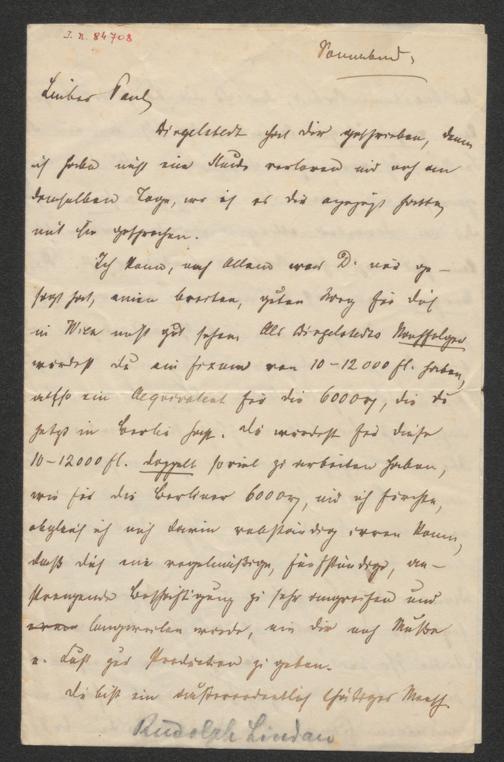 I. N. 84708
Sonnabend,
Lieber Paul
Dingelstedt hat dir geschrieben, denn
ich habe nicht eine Stunde verloren und noch am
demselben Tage, wo ich es dir angezeigt hatte,
mit ihm gesprochen.
Ich kann, nach Allem was D. mir ge-
sagt hat, einen breiten, guten Weg für dich
in Wien nicht gut sehen. Als Dingelstedts Nachfolger
würdest du ein Fixum von 10-12000 fl. haben,
also ein Aequivalent für die 6000 M, die du
jetzt in Berlin hast. Du würdest für diese
10-12000 fl. doppelt soviel zu arbeiten haben,
wie für die Berliner 6000 M, und ich fürchte,
obgleich ich mich darin vollständig irren kann,
daß dich eine regelmäßige, fünfstündige, an-
strengende Beschäftigung zu sehr angreifen und
langweilen würde, um dir noch Muße
u. Lust zur Production zu geben.
Du bist ein außerordentlich thätiger Mensch
Rudolph Lindau